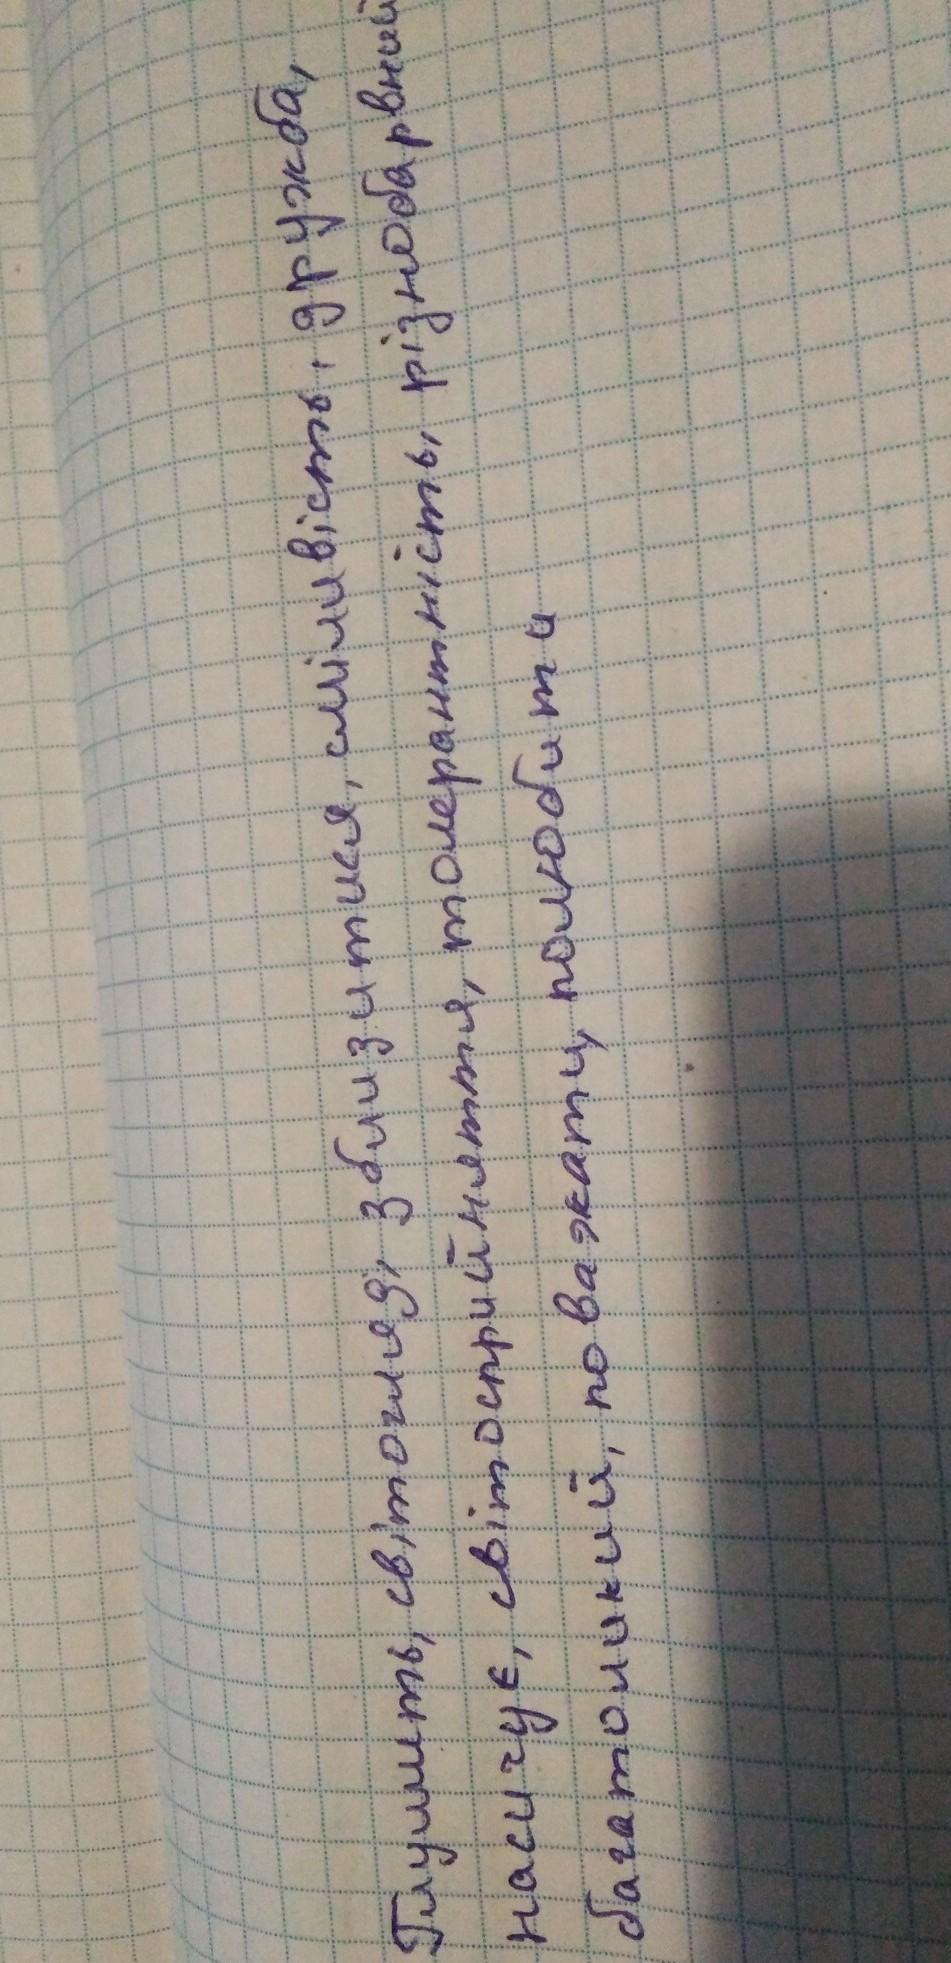 Глумить, світогляд, зблизитися, сміливість, дружба,
насичує, світосприйняття, толерантність, різнобарвний
багатоликий, поважати, полюбити